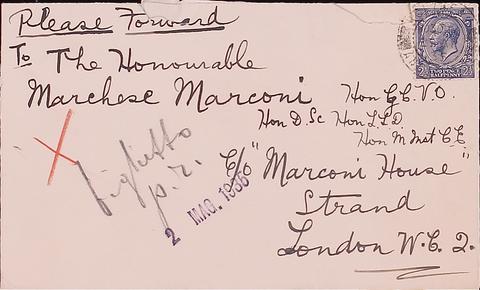 Please Forward
To The Honourable
Marchese Marconi Hon G.C.V.O.
Hon D.Sc Hon L.L.D
Hon M Inst C.E
C/o "Marconi House"
Strand
London W.C. 2.
biglietto
p.r.
2 MAG. 1935